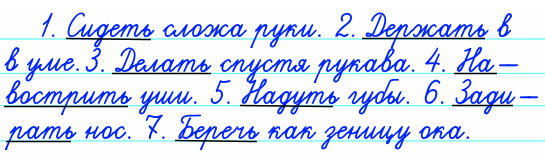 1. Сидеть сложа руки. 2. Держать в
в уме. 3. Делать спустя рукава. 4. На-
вострить уши. 5. Надуть губы. 6. Зади-
рать нос. 7. Беречь как зеницу ока.